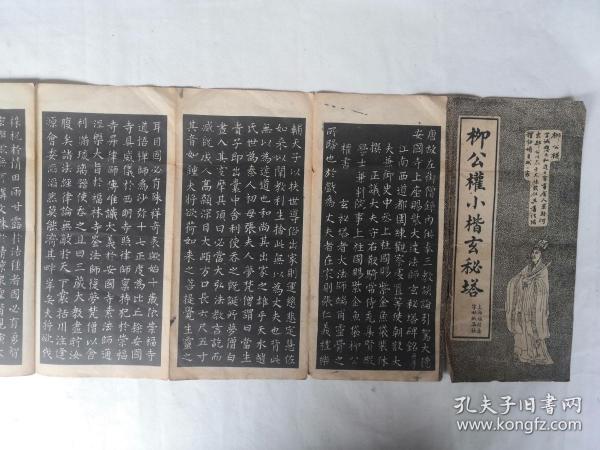 柳公權小楷玄秘塔
唐故左街僧錄內供奉三教談論引駕大德
安國寺上座賜紫大達法師玄秘塔碑銘并序
江南西道都團練觀察處置等使朝散大
夫兼御史中丞上柱國賜紫金魚袋裴休
撰 正議大夫守右散騎常侍充集賢殿
學士兼判院事上柱國賜紫金魚袋柳公
權書 玄秘塔者大法師端甫靈骨之
所歸也於戲為丈夫者在家則張仁義禮樂
輔天子以扶世導俗出家則運慈悲定慧佐
如來以闡教利生捨此無以為丈夫也背此
無以為達道也和尚其出家之雄乎天水趙
氏世為秦人初母張夫人夢梵僧謂曰當生
貴子即出囊中舍利使吞之既誕所夢僧白
晝入其室摩其頂曰必當大弘法教言訖而
滅既成人高顙深目大頤方口長六尺五寸
其音如鍾夫將欲荷如來之菩提鑿生靈之
耳目固必有殊祥奇表歟始十歲依崇福寺
道悟禪師為沙彌十七正度為比丘隸安國
寺具威儀於西明寺照律師稟持犯於崇福
寺昇律師傳唯識大義於安國寺素法師通
涅槃大旨於福林寺崟法師復夢梵僧以舍
利滿琉璃器使吞之且曰三藏大教盡貯汝
腹矣經律論無敵於天下囊括川注逢
源會委滔滔然莫能濟其畔岸矣夫將欲伐
株杌於情田雨甘露於法種者固必有勇智
孔夫子旧书网
www.kongfz.com